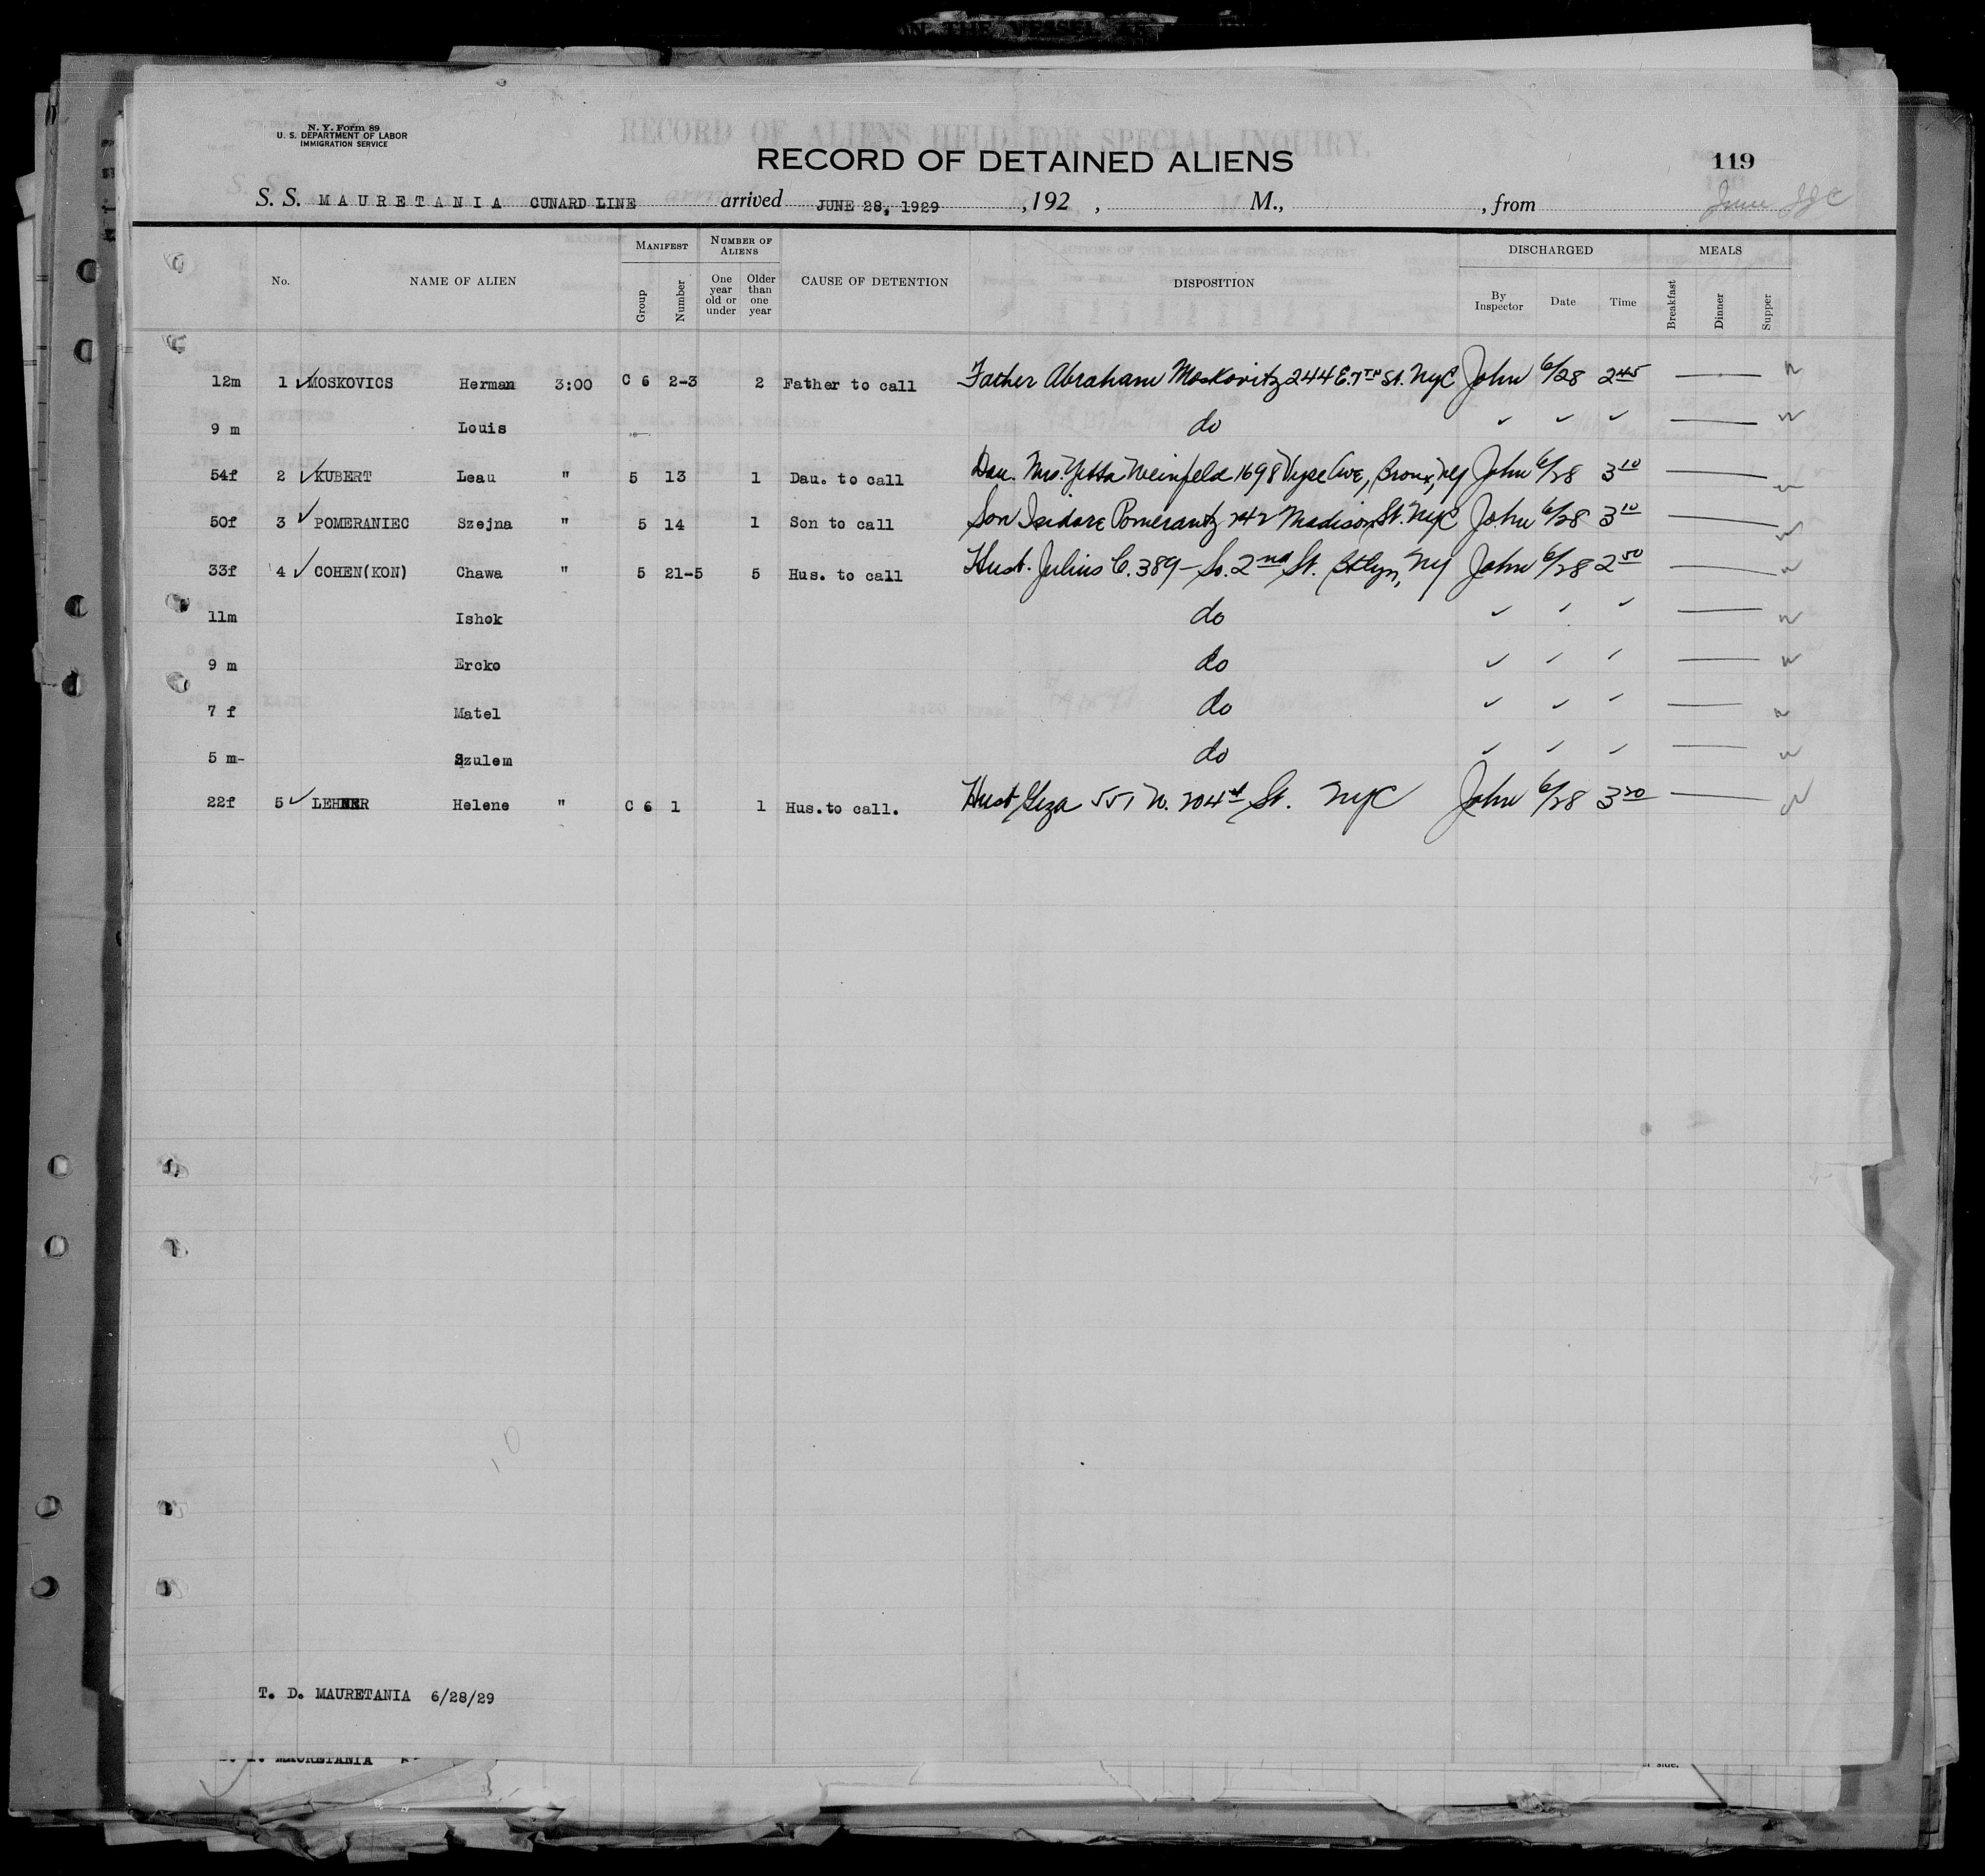 N. Y. Form 89
U. S. DEPARTMENT OF LABOR
IMMIGRATION SERVICE
RECORD OF ALIENS HELD FOR SPECIAL INQUIRY.
RECORD OF DETAINED ALIENS
119
S. S. MAURETANIA CUNARD LINE arrived JUNE 28, 1929 , 192 , M., , from June
No. NAME OF ALIEN MANIFEST Group Number NUMBER OF ALIENS One year old or under Older than one year CAUSE OF DETENTION DISPOSITION DISCHARGED By Inspector Date Time MEALS Breakfast Dinner Supper
12m 1 ✓ MOSKOVICS Herman 3:00 C 6 2-3 2 Father to call Father Abraham Moskovitz 244 E. 7TH St. NYC John 6/28 2 45
9 m Louis do ✓ ✓ ✓
54f 2 ✓ KUBERT Leau " 5 13 1 Dau. to call Dau. Mrs. Yetta Weinfeld 1698 Vyse Ave, Bronx, NY John 6/28 3 10
50f 3 ✓ POMERANIEC Szejna " 5 14 1 Son to call Son Isidore Pomerantz 242 Madison St. NYC John 6/28 3 10
33f 4 ✓ COHEN(KON) Chawa " 5 21-5 5 Hus. to call Husb. Julius C. 389 - So. 2nd St. Bklyn, NY John 6/28 2 50
11m Ishok do ✓ ✓ ✓
9 m Ercko do ✓ ✓ ✓
7 f Matel do ✓ ✓ ✓
5 m- Szulem do ✓ ✓ ✓
22f 5 ✓ LEHNER Helene " C 6 1 1 Hus.to call. Husb Geza 551 W. 204th St. NYC John 6/28 3 20
T. D. MAURETANIA 6/28/29
MAURETANIA